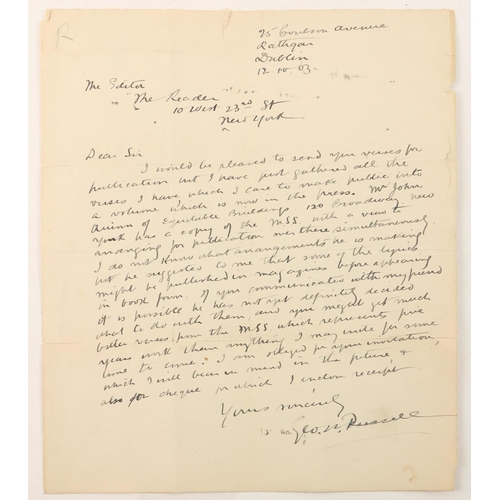 25 Coulson Avenue
Rathgar
Dublin
12.10.03.
The Editor
The Reader
10 West 23rd St
New York
Dear Sir
I would be pleased to send you verses for
publication but I have just gathered all the
verses I have which I care to make public into
a volume which is now in the press. Mr John
Quinn of Equitable Buildings 120 Broadway New
York has a copy of the MSS with a view to
arranging for publication over there simultaneously
I do not know what arrangements he is making
but he suggested to me that some of the lyrics
might be published in magazines before appearing
in book form. If you communicated with my friend
it is possible he has not yet definitely decided
what to do with them and you might get much
better verses from the MSS which represents five
years work than anything I may write for some
time to come. I am obliged for your invitation,
which I will bear in mind in the future, &
also for cheque for which I enclose receipt
Yours sincerely
Geo. W. Russell